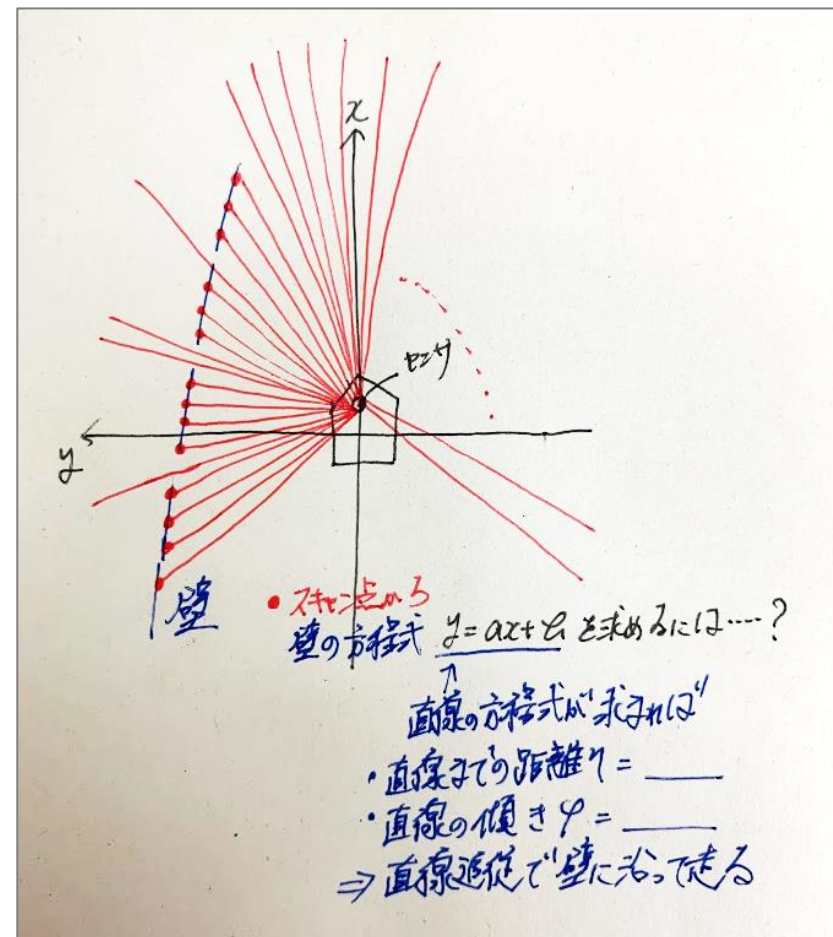 x
センサ
y
壁
• スキャン点から
壁の方程式 y = ax + b を求めるには‥‥?
↑
直線の方程式が求まれば
・直線までの距離 η = ____
・直線の傾き φ = ____
⇒ 直線追従で壁に沿って走る